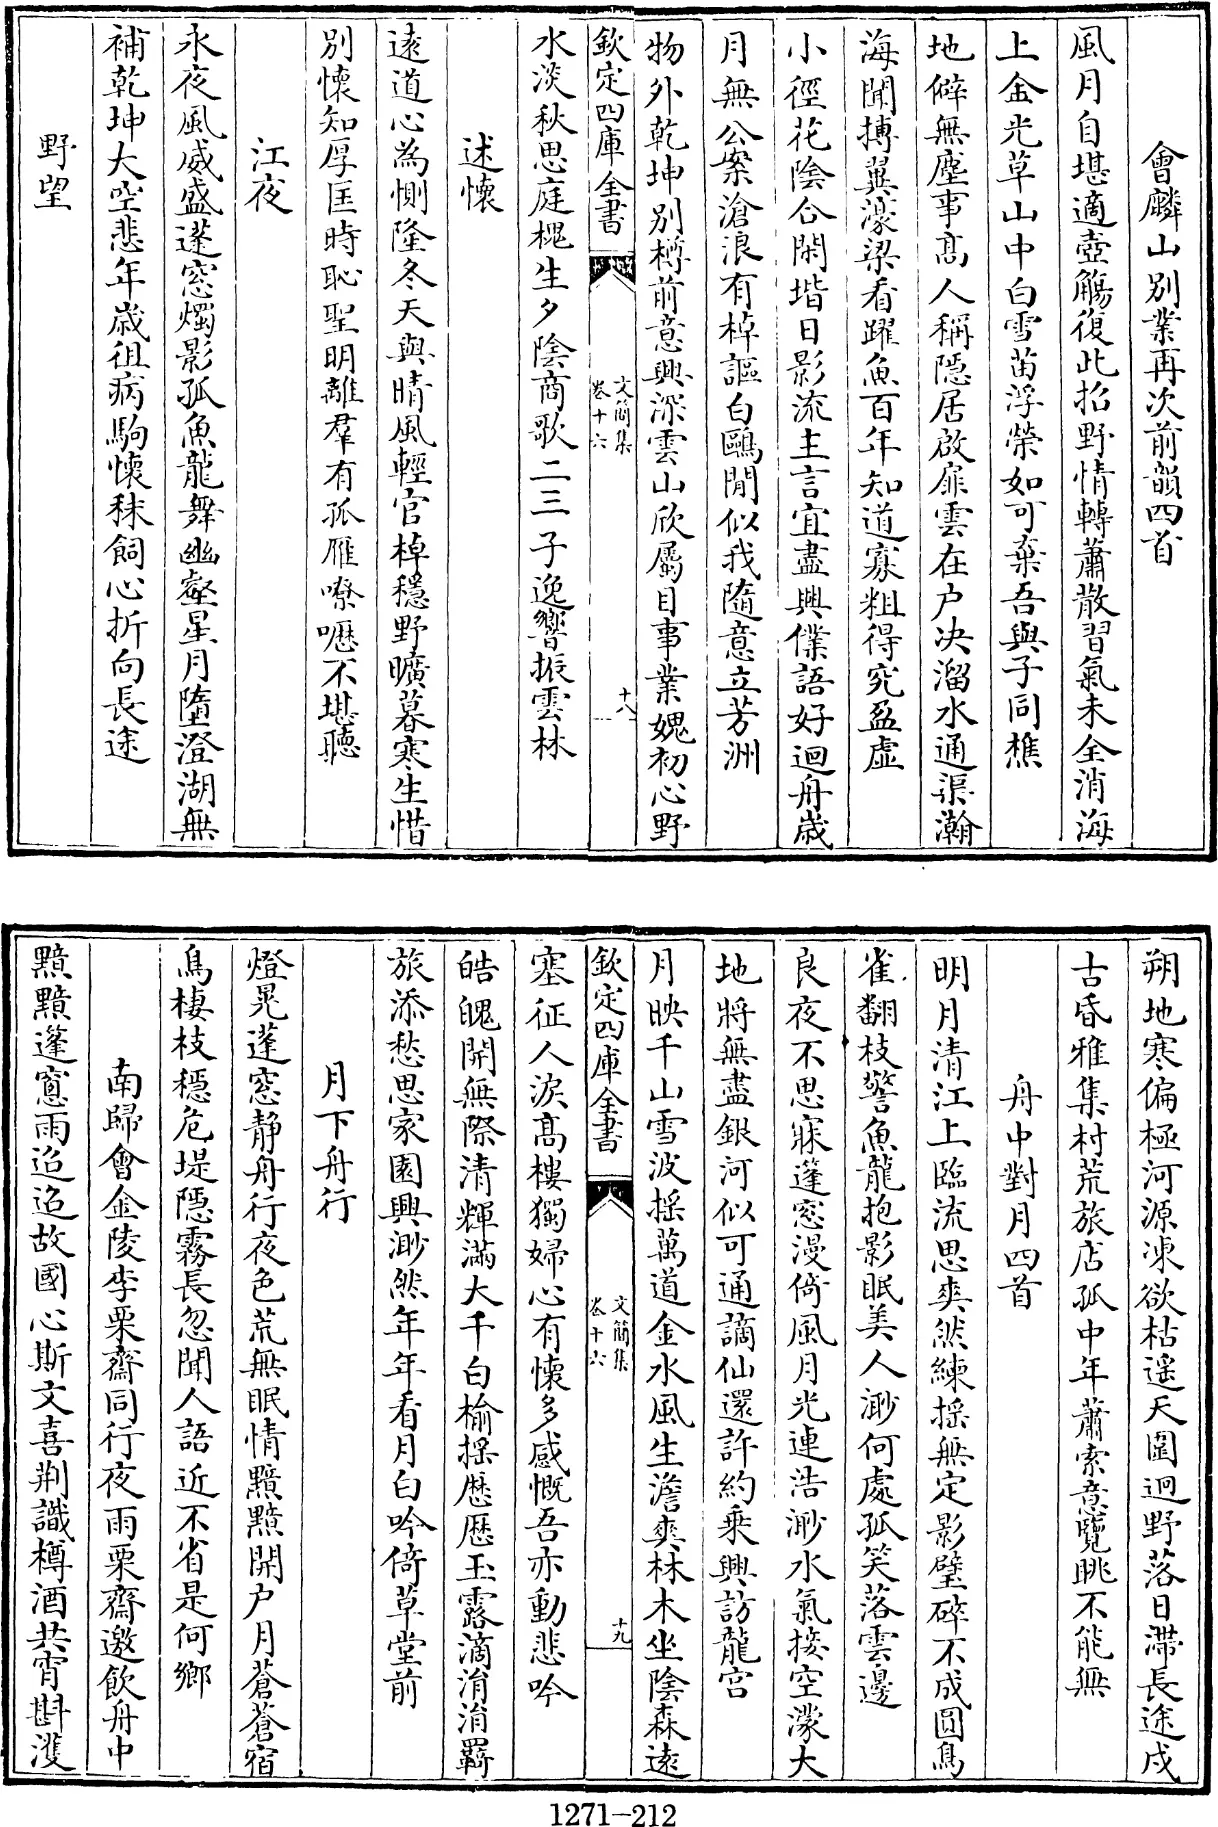 會麟山别業再次前韻四首
風月自堪適壺觴復此招野情轉蕭散習氣未全消海
上金光草山中白雪苗浮榮如可棄吾與子同樵
地僻無塵事髙人稱隠居啟扉雲在户决溜水通渠瀚
海聞摶翼濠梁看躍魚百年知道寡粗得究盈虚
小徑花陰合閑堦日影流主言宜盡興僕語好迴舟歳
月無公案滄浪有棹謳白鷗閒似我隨意立芳洲
物外乾坤别樽前意興深雲山欣屬目事業媿初心野
欽定四庫全書
文簡集
卷十六
十八
水淡秋思庭槐生夕陰商歌二三子逸響振雲林
述懷
逺道心為惻隆冬天與晴風輕官棹穩野曠暮寒生惜
别懷知厚匡時恥聖明離羣有孤雁嘹嚦不堪聽
江夜
永夜風威盛蓬窓燭影孤魚龍舞幽壑星月墮澄湖無
補乾坤大空悲年歳徂病駒懷秣飼心折向長途
野望
朔地寒偏極河源凍欲枯遥天圍迥野落日滯長途戍
古昏雅集村荒旅店孤中年蕭索意覽眺不能無
舟中對月四首
明月清江上臨流思爽然練揺無定影璧碎不成圓鳥
雀翻枝警魚龍抱影眠美人渺何處孤笑落雲邊
良夜不思寐蓬窓漫倚風月光連浩渺水氣接空濛大
地將無盡銀河似可通謫仙還許約乗興訪龍宫
月映千山雪波揺萬道金水風生澹爽林木坐陰森逺
欽定四庫全書
文簡集
卷十六
十九
塞征人淚髙樓獨婦心有懷多感慨吾亦動悲吟
皓魄開無際清輝滿大千白榆揺歴歴玉露滴涓涓羇
旅添愁思家園興渺然年年看月白吟倚草堂前
月下舟行
燈晃蓬窓静舟行夜色荒無眠情黯黯開户月蒼蒼宿
鳥棲枝穩危堤隠霧長忽聞人語近不省是何鄉
南歸會金陵李栗齋同行夜雨栗齋邀飲舟中
黯黯蓬窻雨迢迢故國心斯文喜荆識樽酒共宵斟濩
1271-212